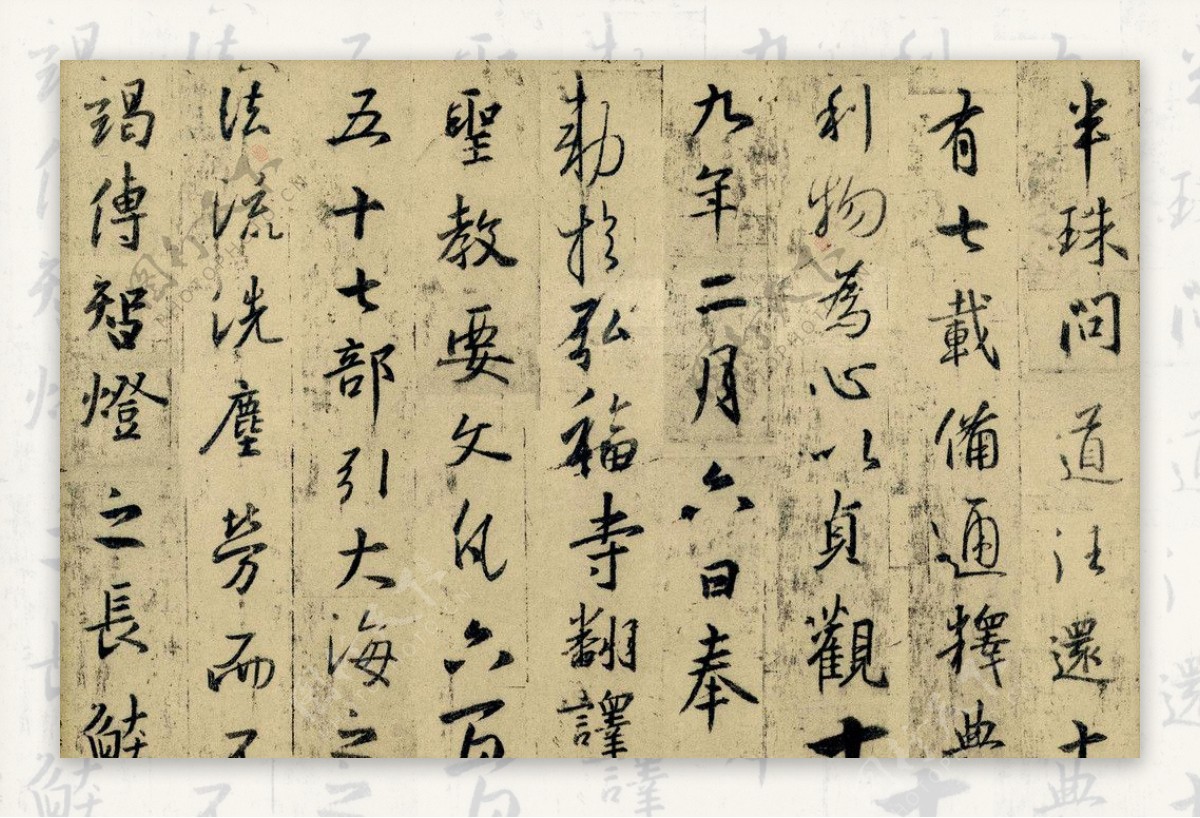 半珠問道往還十
有七載備通釋典
利物為心以貞觀十
九年二月六日奉
勅於弘福寺翻譯
聖教要文凡六百
五十七部引大海之
法流洗塵勞而不
竭傳智燈之長